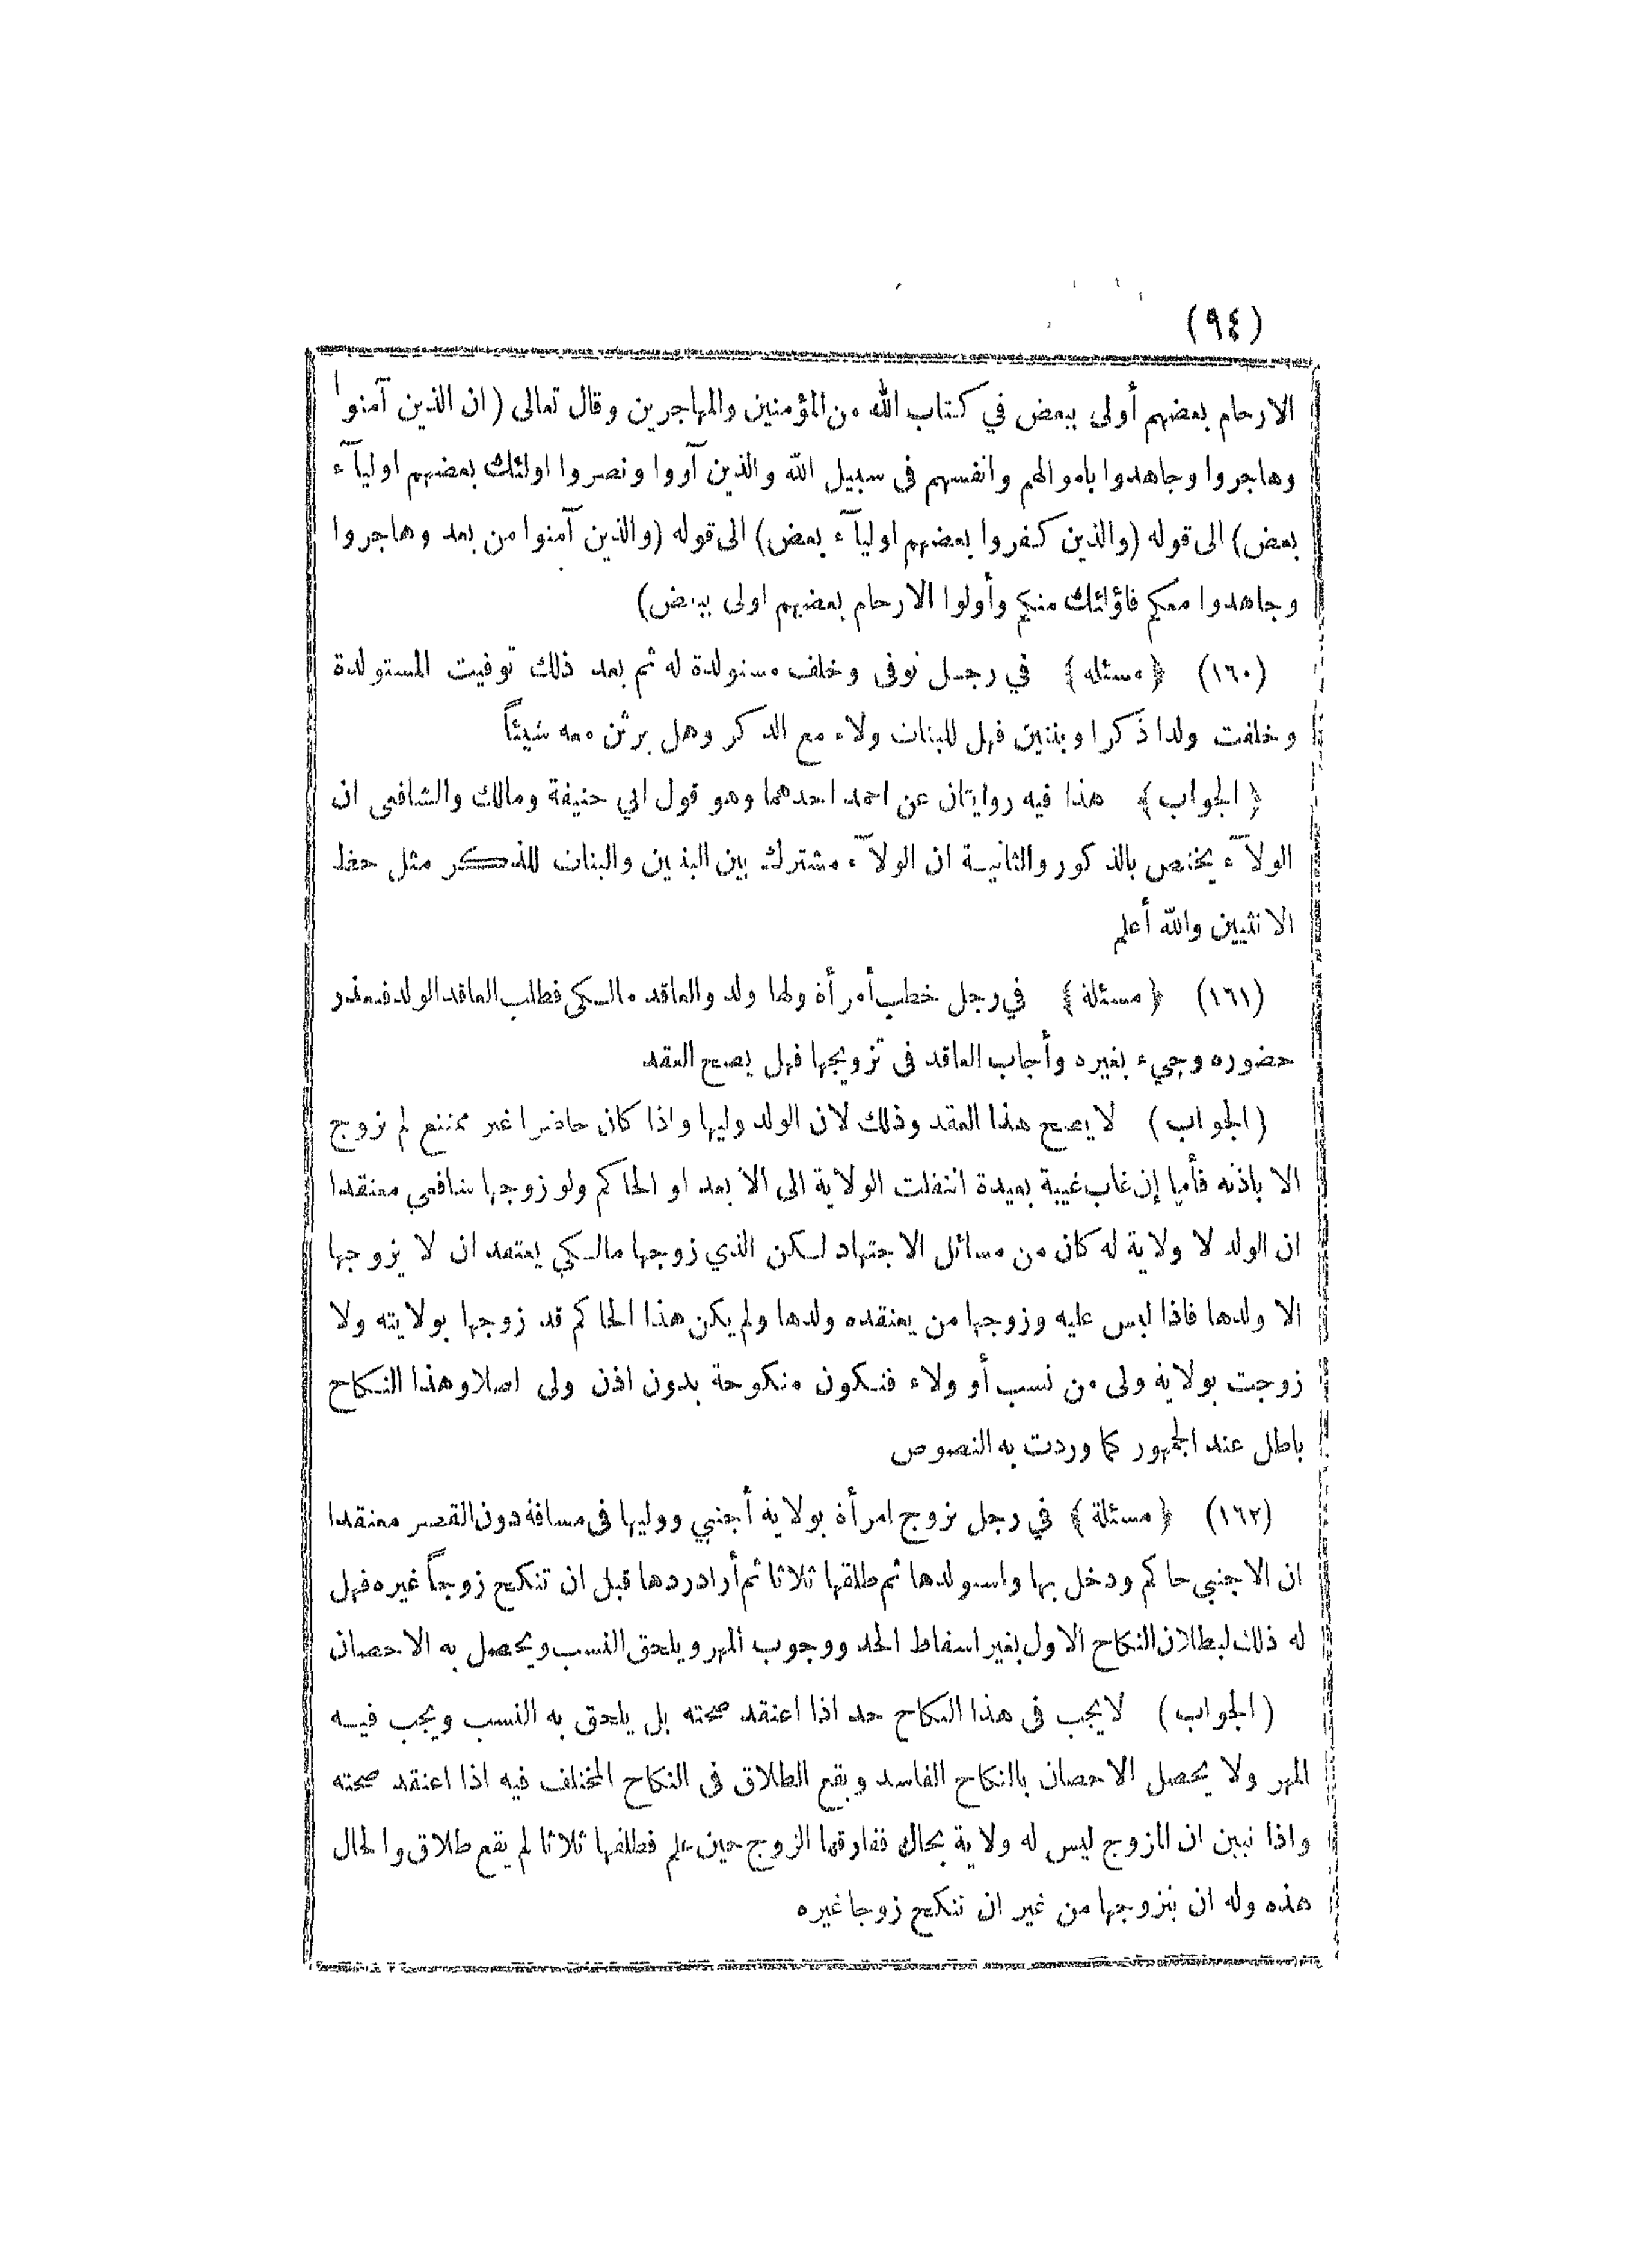 (٩٤)
الارحام بعضهم أولى ببعض في كتاب الله من المؤمنين والمهاجرين وقال تعالى (ان الذين آمنوا
وهاجروا وجاهدوا باموالهم وانفسهم فى سبيل الله والذين آووا ونصروا اولئك بعضهم اوليآء
بعض) الى قوله (والذين كفروا بعضهم اوليآء بعض) الى قوله (والذين آمنوا من بعد وهاجروا
وجاهدوا معكم فاؤلئك منكم وأولوا الارحام بعضهم اولى ببعض)
(١٦٠) ﴿مسئله﴾ في رجل توفى وخلف مستولدة له ثم بعد ذلك توفيت المستولدة
وخلفت ولدا ذكرا وبنتين فهل للبنات ولاء مع الذكر وهل يرثن معه شيئاً
﴿الجواب﴾ هذا فيه روايتان عن احمد احدهما وهو قول ابي حنيفة ومالك والشافعى ان
الولآء يختص بالذكور والثانية ان الولآء مشترك بين البنين والبنات للذكر مثل حظ
الانثيين والله أعلم
(١٦١) ﴿مسئلة﴾ في رجل خطب أمرأة ولها ولد والعاقد مالكى فطلب العاقد الولد فتعذر
حضوره وجيء بغيره وأجاب العاقد فى تزويجها فهل يصح العقد
(الجواب) لا يصح هذا العقد وذلك لان الولد وليها واذا كان حاضرا غير ممتنع لم تزوج
الا باذنه فأما إن غاب غيبة بعيدة انتقلت الولاية الى الابعد او الحاكم ولو زوجها شافعي معتقدا
ان الولد لا ولاية له كان من مسائل الاجتهاد لكن الذي زوجها مالكي يعتقد ان لا يزوجها
الا ولدها فاذا لبس عليه وزوجها من يعتقده ولدها ولم يكن هذا الحاكم قد زوجها بولايته ولا
زوجت بولاية ولى من نسب أو ولاء فتكون منكوحة بدون اذن ولى اصلا وهذا النكاح
باطل عند الجمهور كما وردت به النصوص
(١٦٢) ﴿مسئلة﴾ في رجل تزوج امرأة بولاية أجنبي ووليها فى مسافة دون القصر معتقدا
ان الاجنبي حاكم ودخل بها واستولدها ثم طلقها ثلاثا ثم أراد ردها قبل ان تنكح زوجاً غيره فهل
له ذلك لبطلان النكاح الاول بغير اسقاط الحد ووجوب المهر ويلحق النسب ويحصل به الاحصان
(الجواب) لا يجب فى هذا النكاح حد اذا اعتقد صحته بل يلحق به النسب ويجب فيه
المهر ولا يحصل الاحصان بالنكاح الفاسد ويقع الطلاق فى النكاح المختلف فيه اذا اعتقد صحته
واذا تبين ان المزوج ليس له ولاية بحال ففارقها الزوج حين علم فطلقها ثلاثا لم يقع طلاق والحال
هذه وله ان يتزوجها من غير ان تنكح زوجا غيره